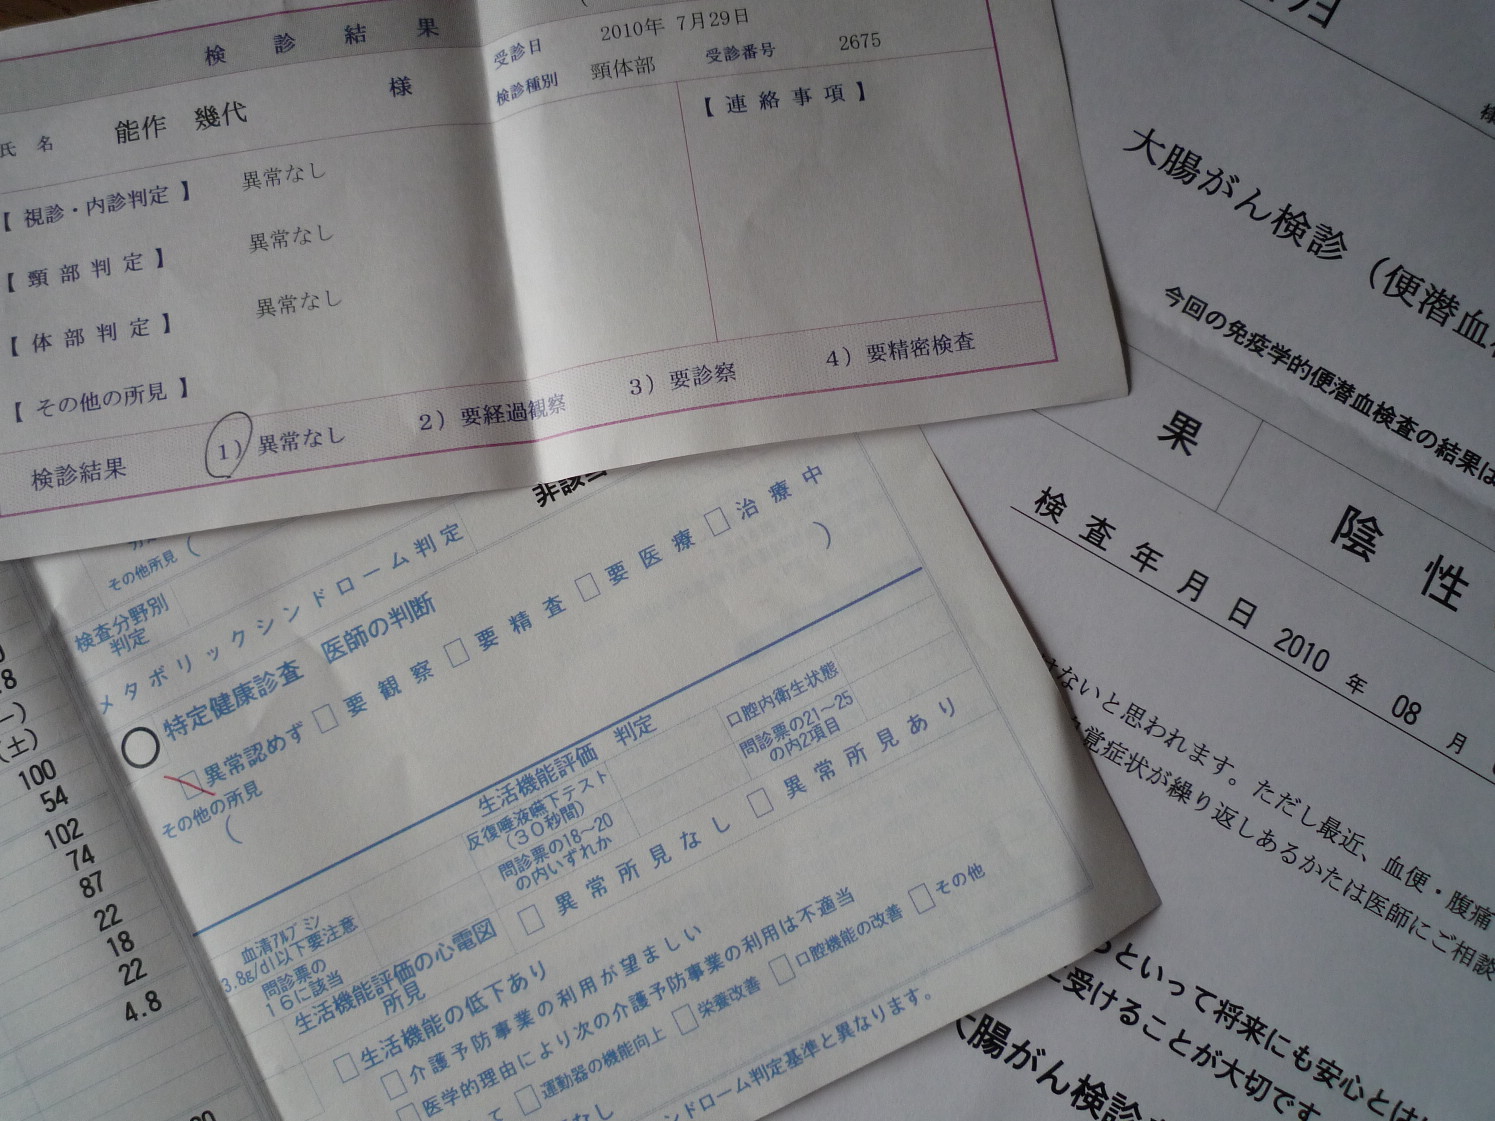 検診結果
受診日 2010年 7月29日
検診種別 頸体部 受診番号 2675
氏名 能作 幾代 様
【連絡事項】
【視診・内診判定】 異常なし
【頸部判定】 異常なし
【体部判定】 異常なし
【その他の所見】
検診結果 1）異常なし 2）要経過観察 3）要診察 4）要精密検査
その他所見（
検査分野別
判定
メタボリックシンドローム判定
非該当
特定健康診査 医師の判断
異常認めず 要観察 要精査 要医療 治療中
その他の所見
（ ）
生活機能評価 判定
反復唾液嚥下テスト
（３０秒間）
問診票の18～20
の内いずれか
口腔内衛生状態
問診票の21～25
の内2項目
血清アルブミン
3.8g/dl以下要注意
問診票の
１６に該当
生活機能評価の心電図
所見
異常所見なし 異常所見あり
生活機能の低下あり
介護予防事業の利用が望ましい
医学的理由により次の介護予防事業の利用は不適当
運動器の機能向上 栄養改善 口腔機能の改善 その他
ンドローム判定基準と異なります。
(土)
100
54
102
74
87
22
18
22
4.8
大腸がん検診（便潜血
今回の免疫学的便潜血検査の結果は
果 陰性
検査年月日 2010 年 08 月
ないと思われます。ただし最近、血便・腹痛
覚症状が繰り返しあるかたは医師にご相談
らといって将来にも安心とは
に受けることが大切です
大腸がん検診